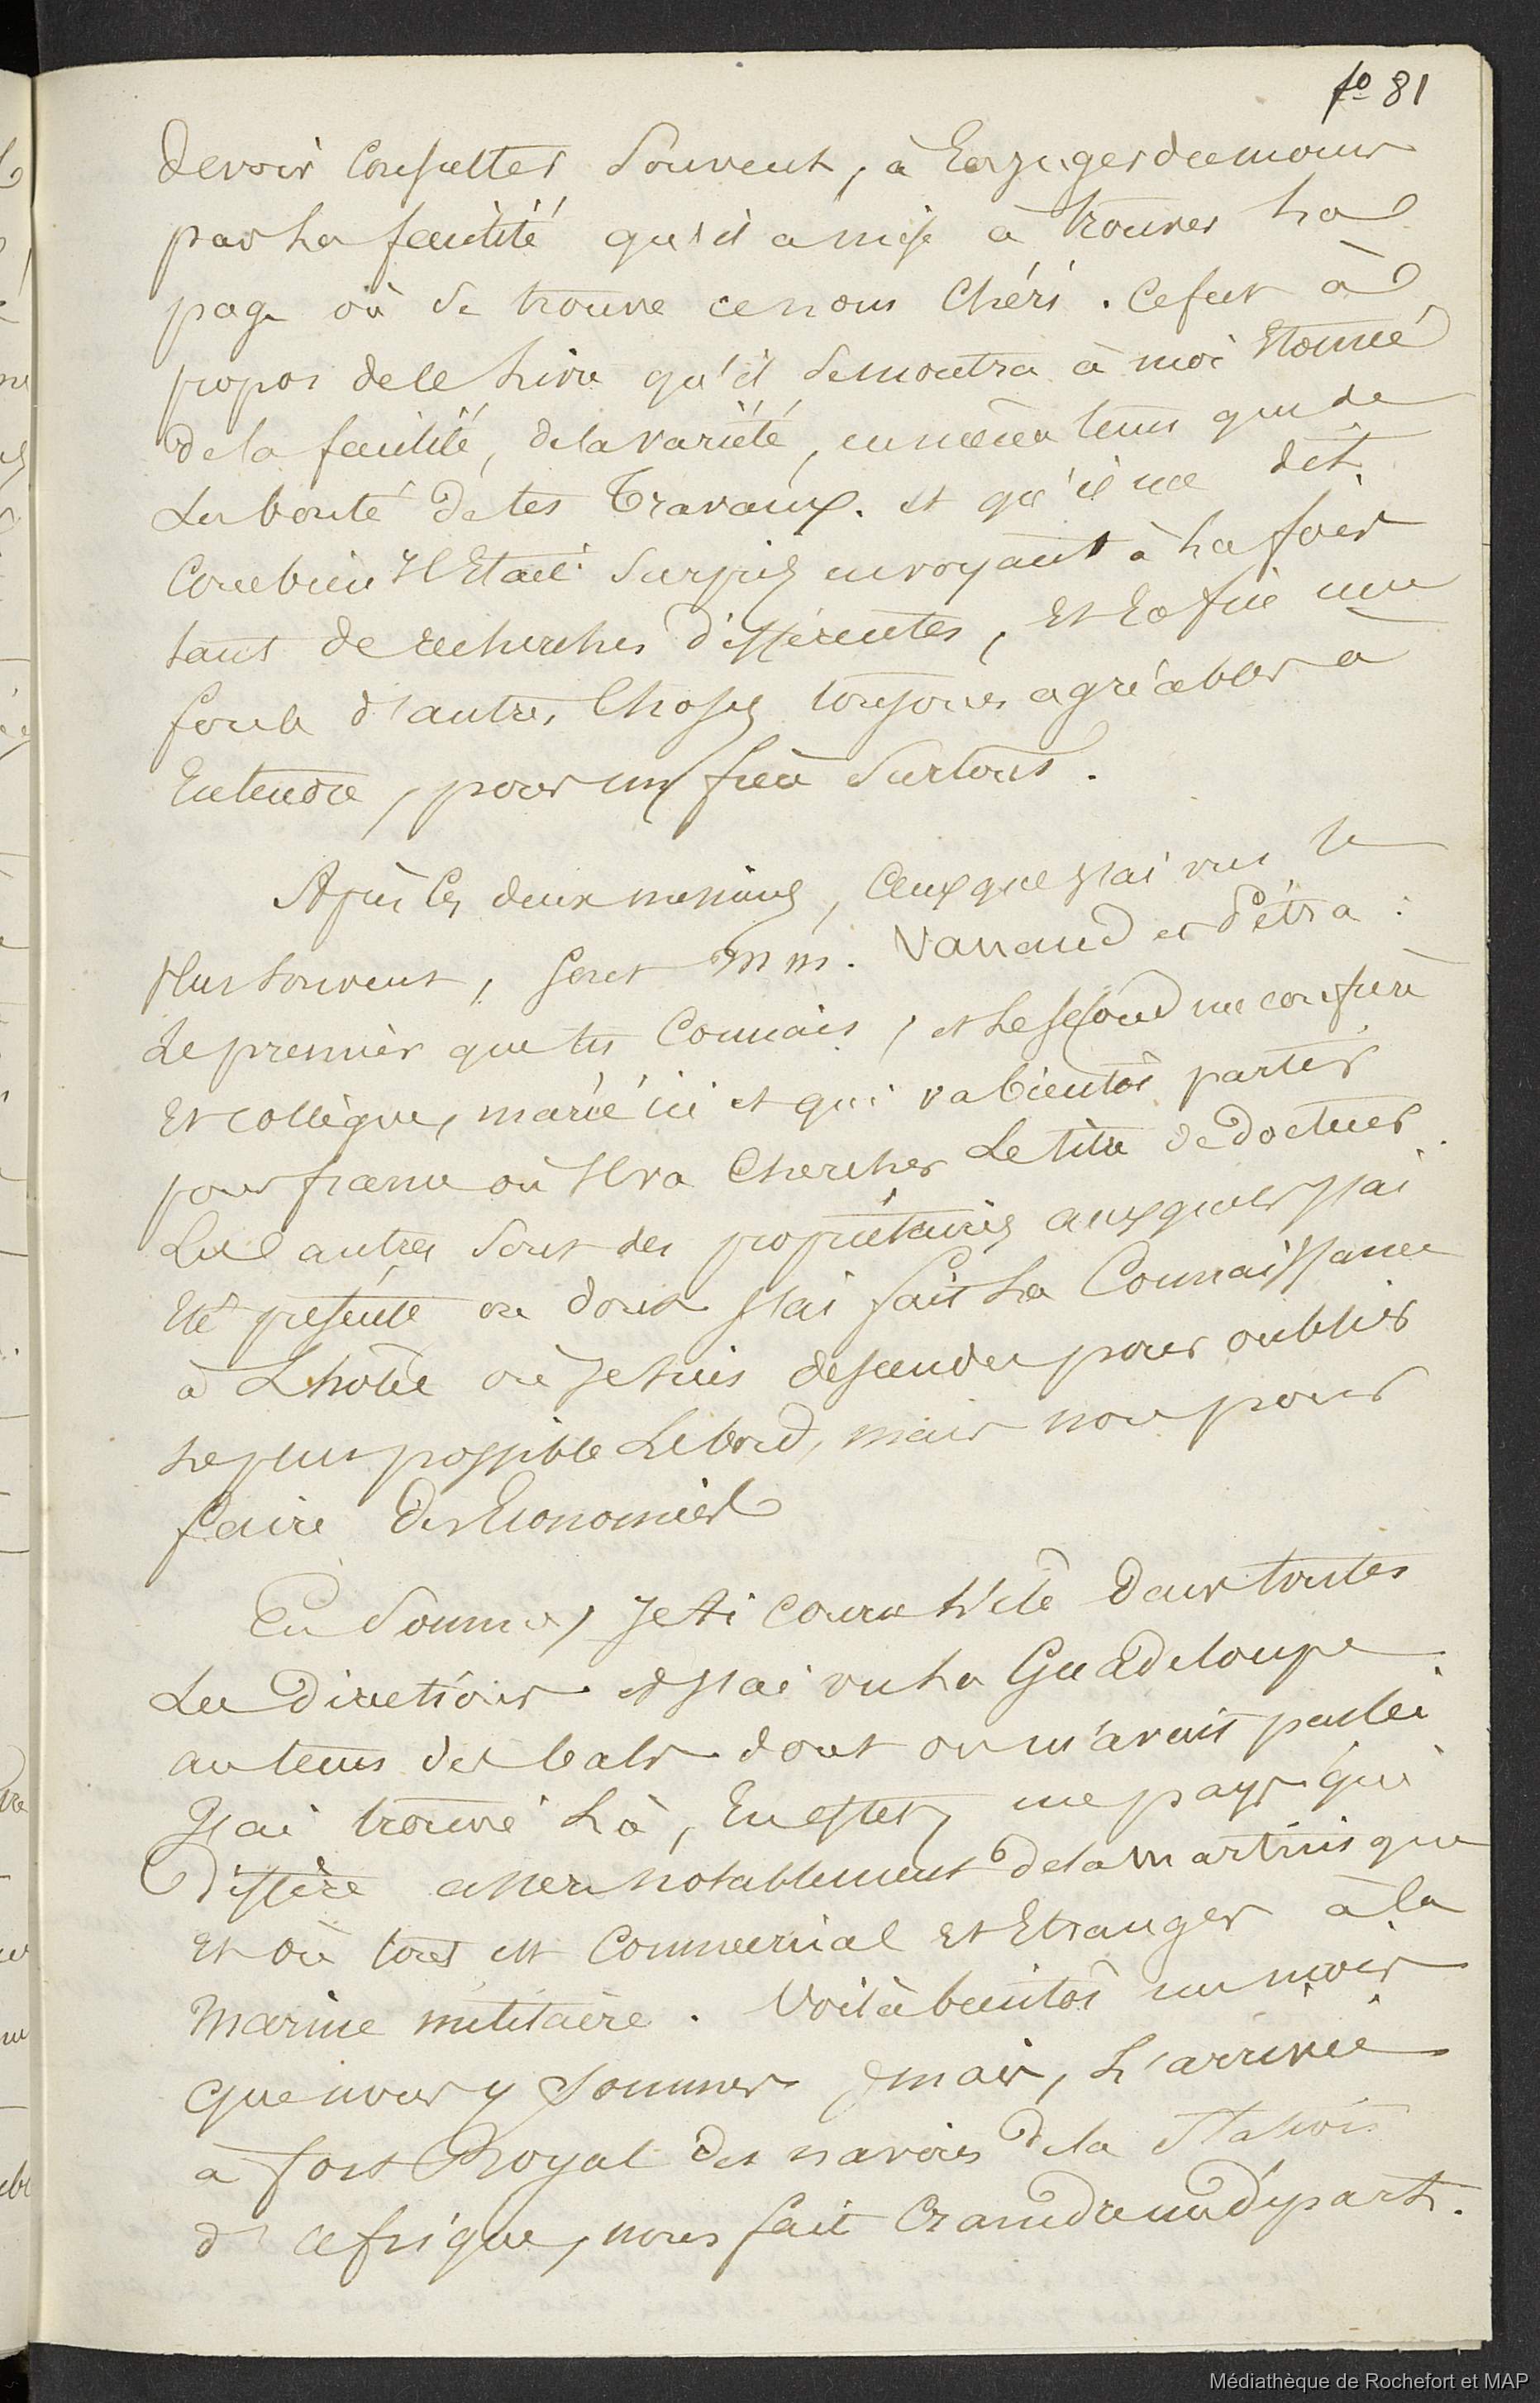 fo 81
devoir Consulter Souvent, à En juger du moins
par La facilité qu'il a mise à trouver La
page où Se trouve ce nom Chéri. Ce fut à
propos de ce Livre qu'il Se montra à moi Etonné
de la facilité, de la variété, en même tems que de
La bonté de tes Travaux. et qu'il me dit
Combien Il Etait Surpris en voyant à La fois
tant de recherches différentes, Et Enfin une
foule d'autres Choses toujours agréables à
Entendre, pour un frère Surtout.
Après Ces deux messieurs, Ceux que J'ai vus le
plus Souvent, Sont M m. Vanaud et Pétra :
Le premier que tu Connais, et Le Second un confrère
Et collègue, marié ici et qui va bientôt partir
pour france où Il va Chercher Le titre de docteur
Les autres Sont des propriétaires auxquels J'ai
Eté présenté ou dont J'ai fait La Connaissance
à L'hotel où Je Suis descendu pour oublier
Le plus possible Le bord, mais non pour
faire des Economies
En Somme, Je ai couru L'ile dans toutes
Les Directions et J'ai vu La Guadeloupe
au tems des bals dont on m'avait parlé
J'ai trouvé Là, En effet, un pays qui
Diffère assez notablement de la Martinique
Et où tout est Commercial Et Etranger à la
Marine militaire. Voilà bientôt un mois
que nous y Sommes mais, L'arrivée
a fort Royal des navires de la Station
d'afrique, nous fait Craindre un départ.
Médiathèque de Rochefort et MAP